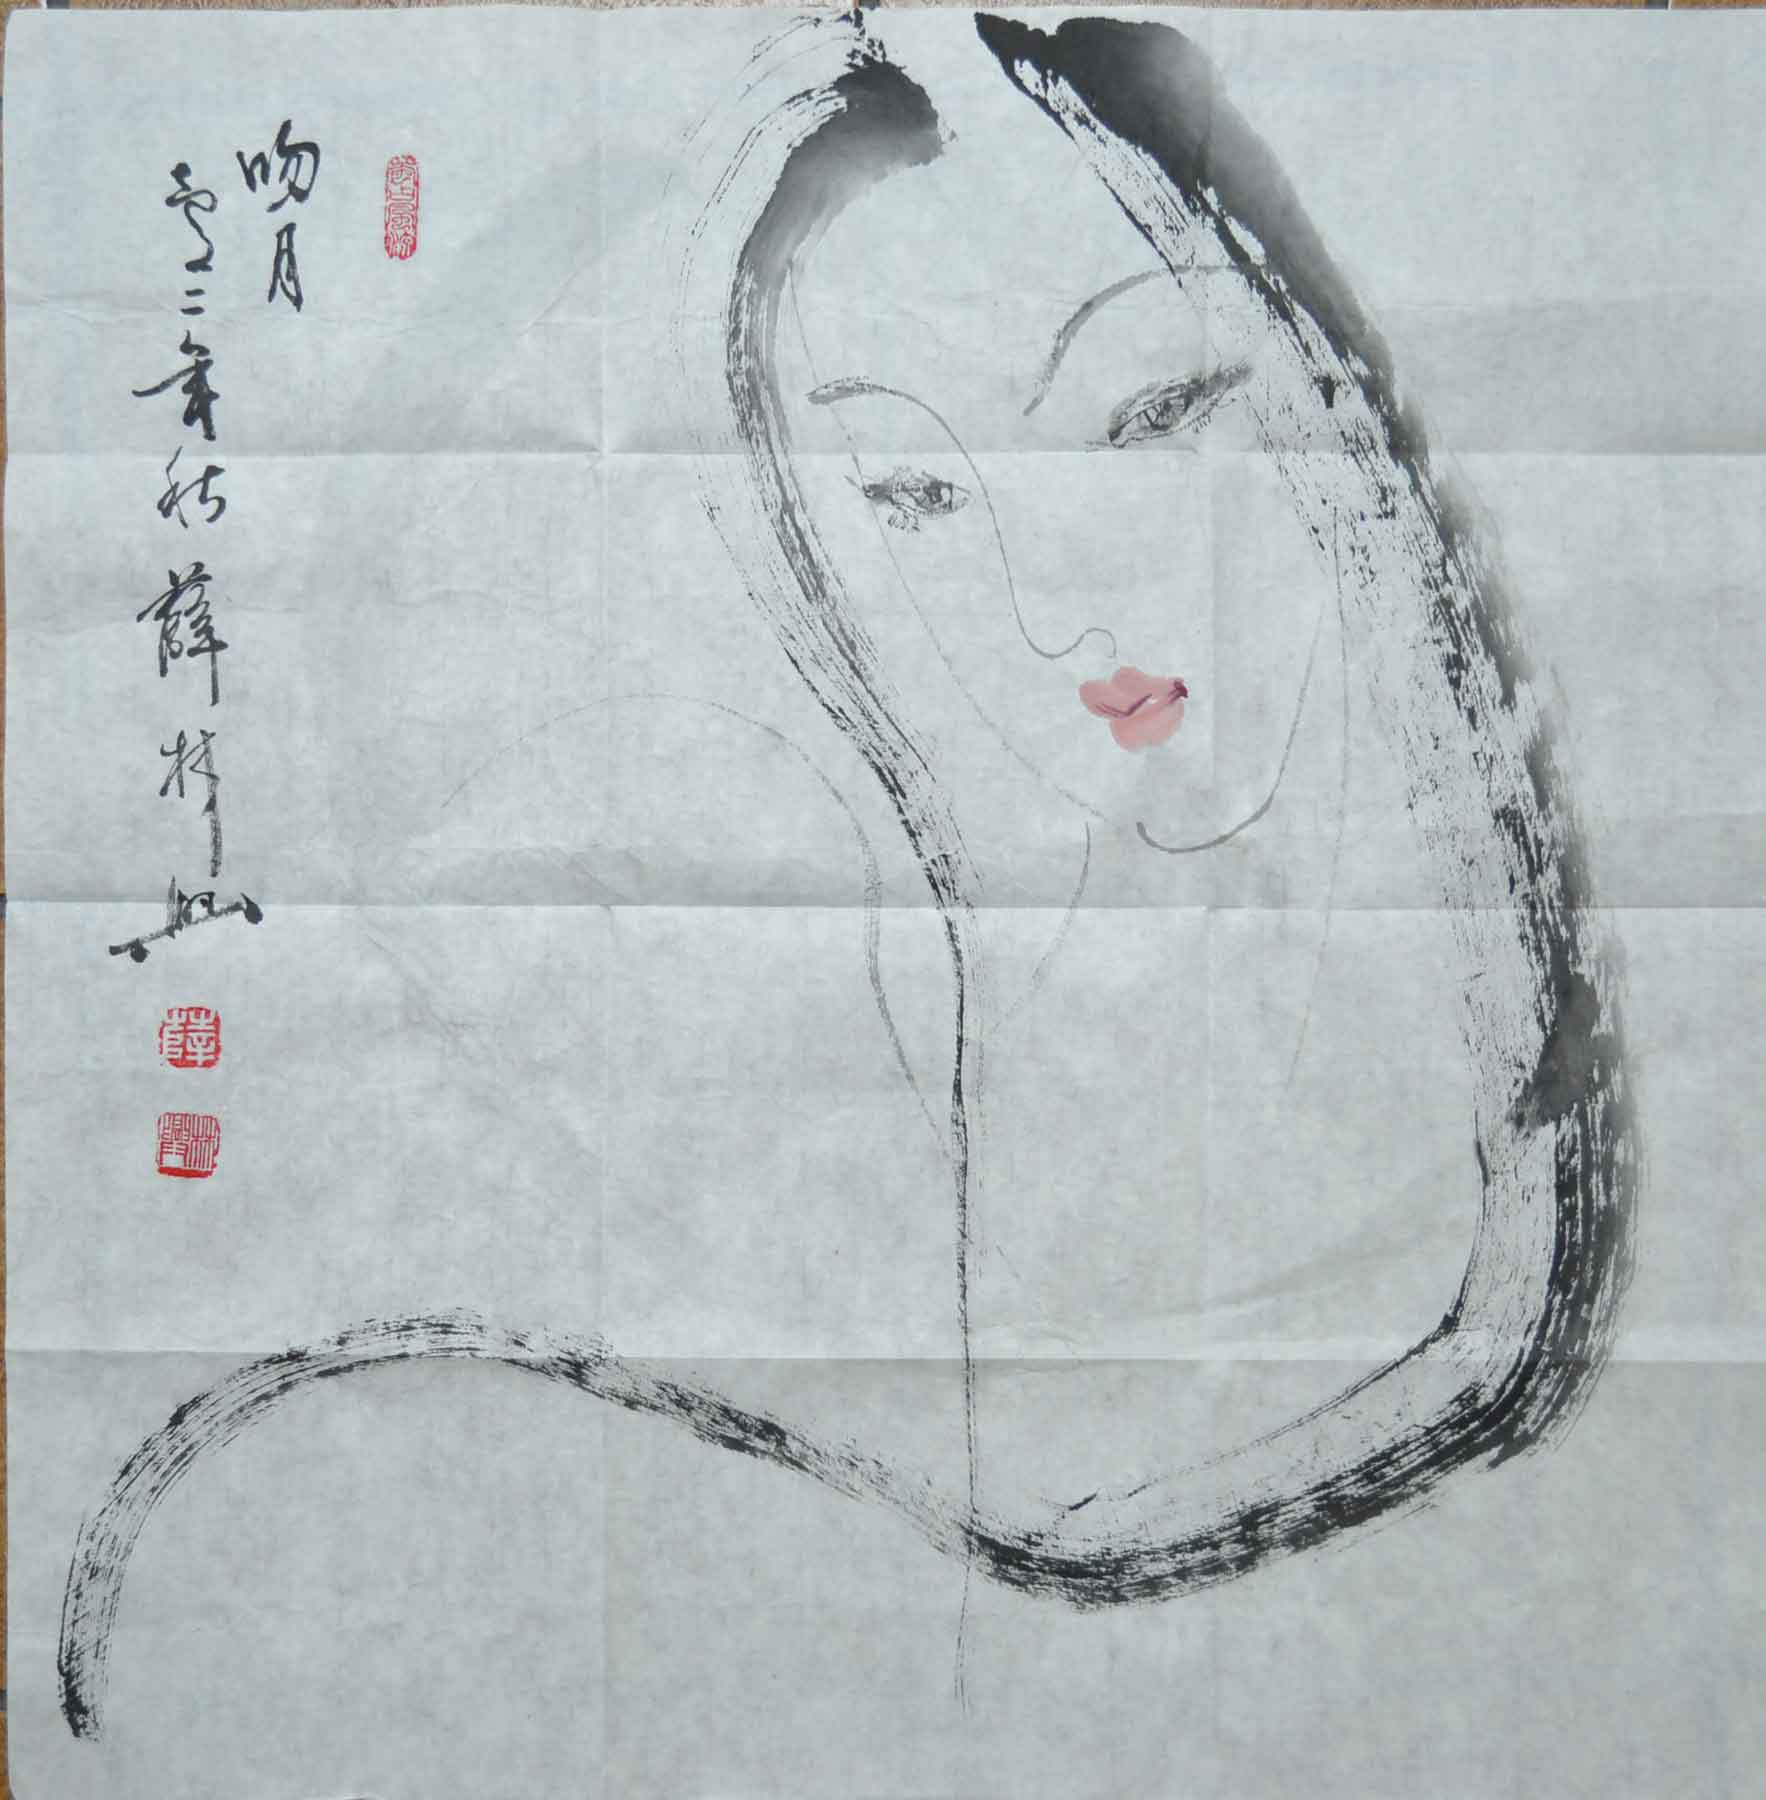 吻月
零二年秋 薛林興
薛
林興